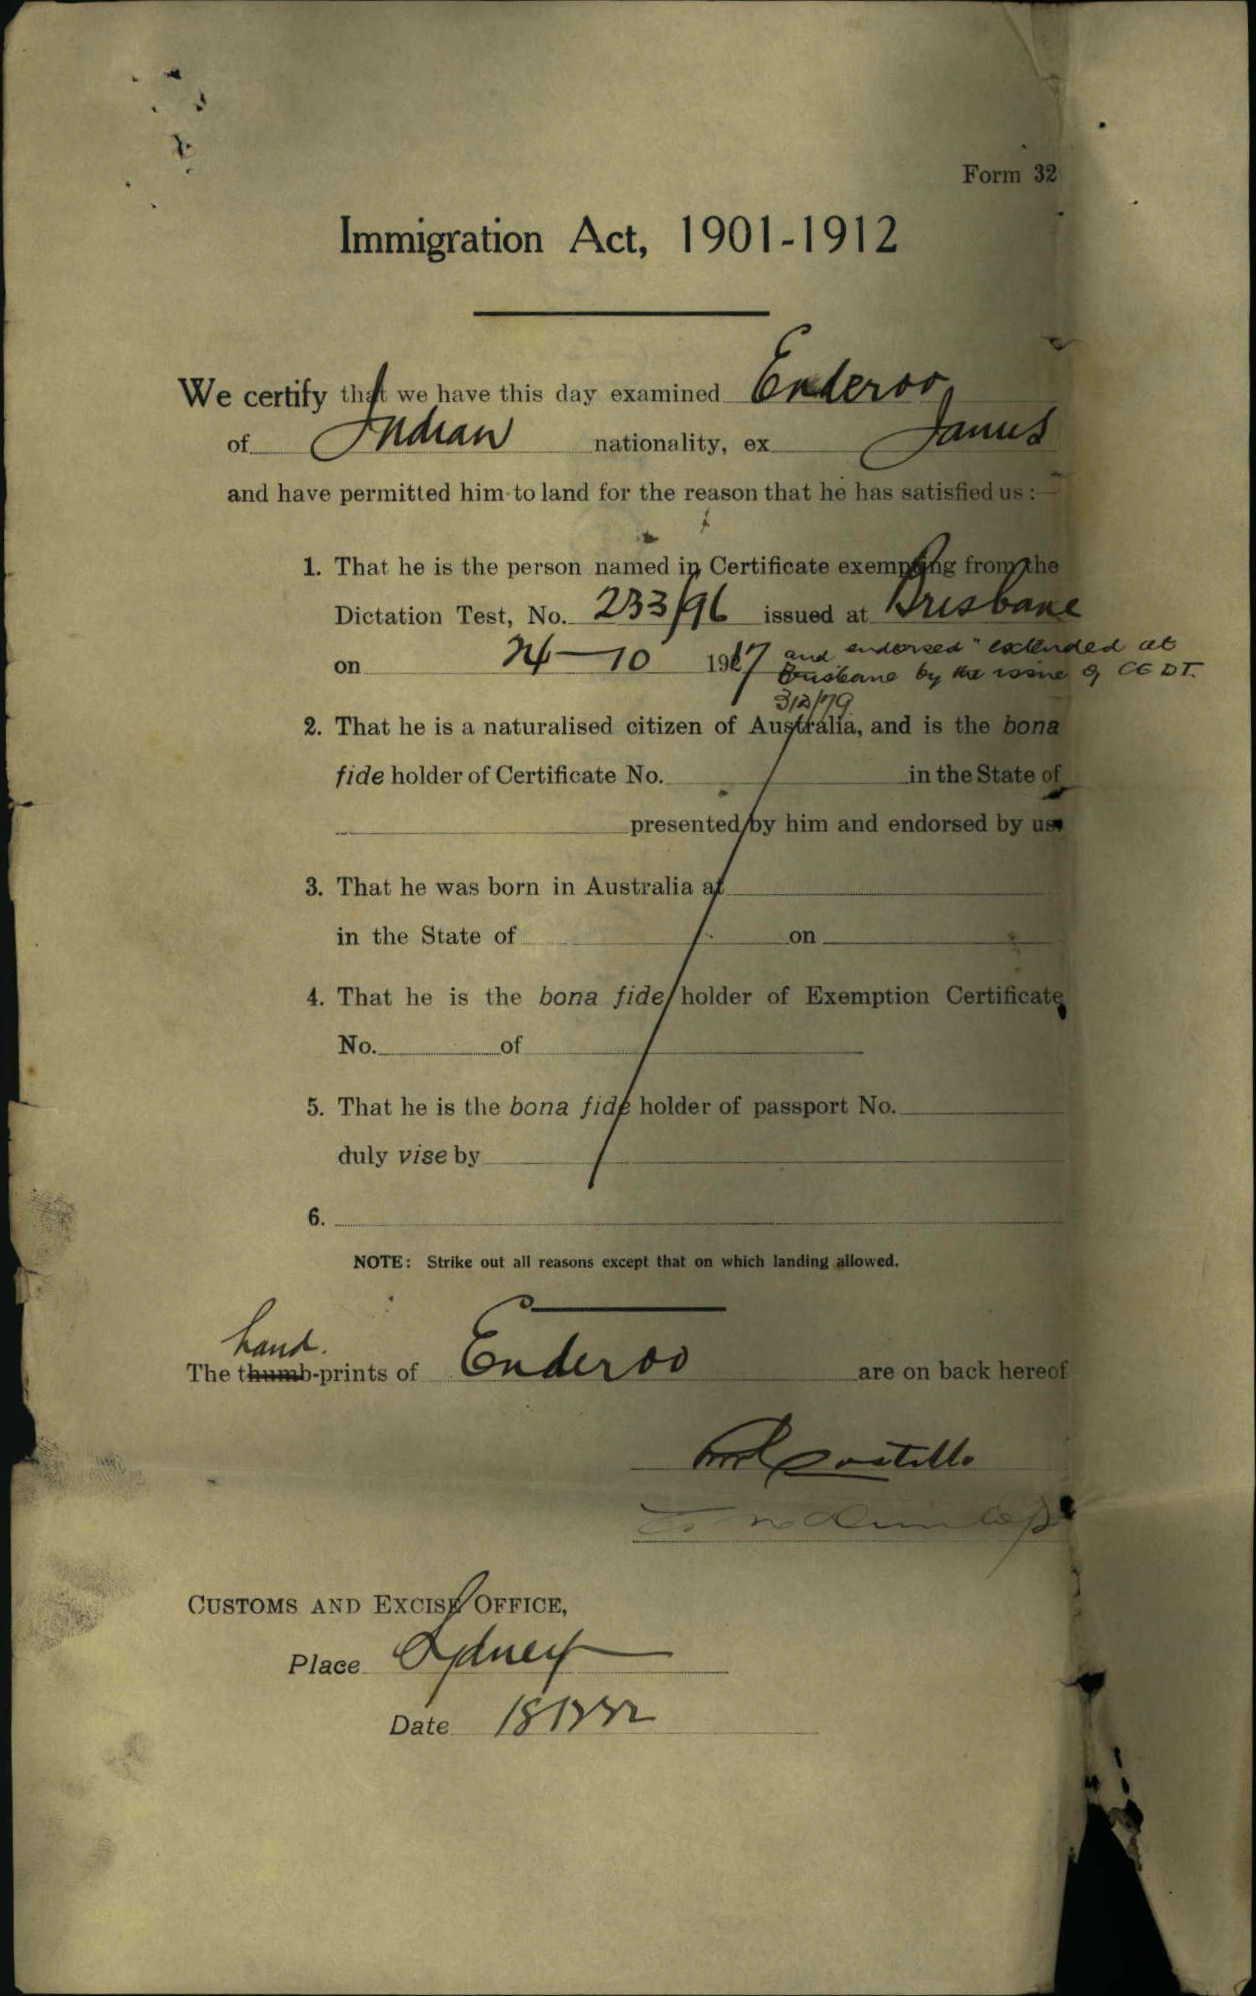 Form 32
Immigration Act, 1901-1912
We certify that we have this day examined Enderoo
of Indian nationality, ex Janus
and have permitted him to land for the reason that he has satisfied us :—
1. That he is the person named in Certificate exempting from the
Dictation Test, No. 233/96 issued at Brisbane
on 24—10 1917 and endorsed "extended at
Brisbane by the issue of CEDT.
312/79
2. That he is a naturalised citizen of Australia, and is the bona
fide holder of Certificate No. in the State of
presented by him and endorsed by us.
3. That he was born in Australia at
in the State of on
4. That he is the bona fide holder of Exemption Certificate
No. of
5. That he is the bona fide holder of passport No.
duly vise by
6.
NOTE: Strike out all reasons except that on which landing allowed.
hand.
The thumb-prints of Enderoo are on back hereof
Costello
CUSTOMS AND EXCISE OFFICE,
Place Sydney
Date